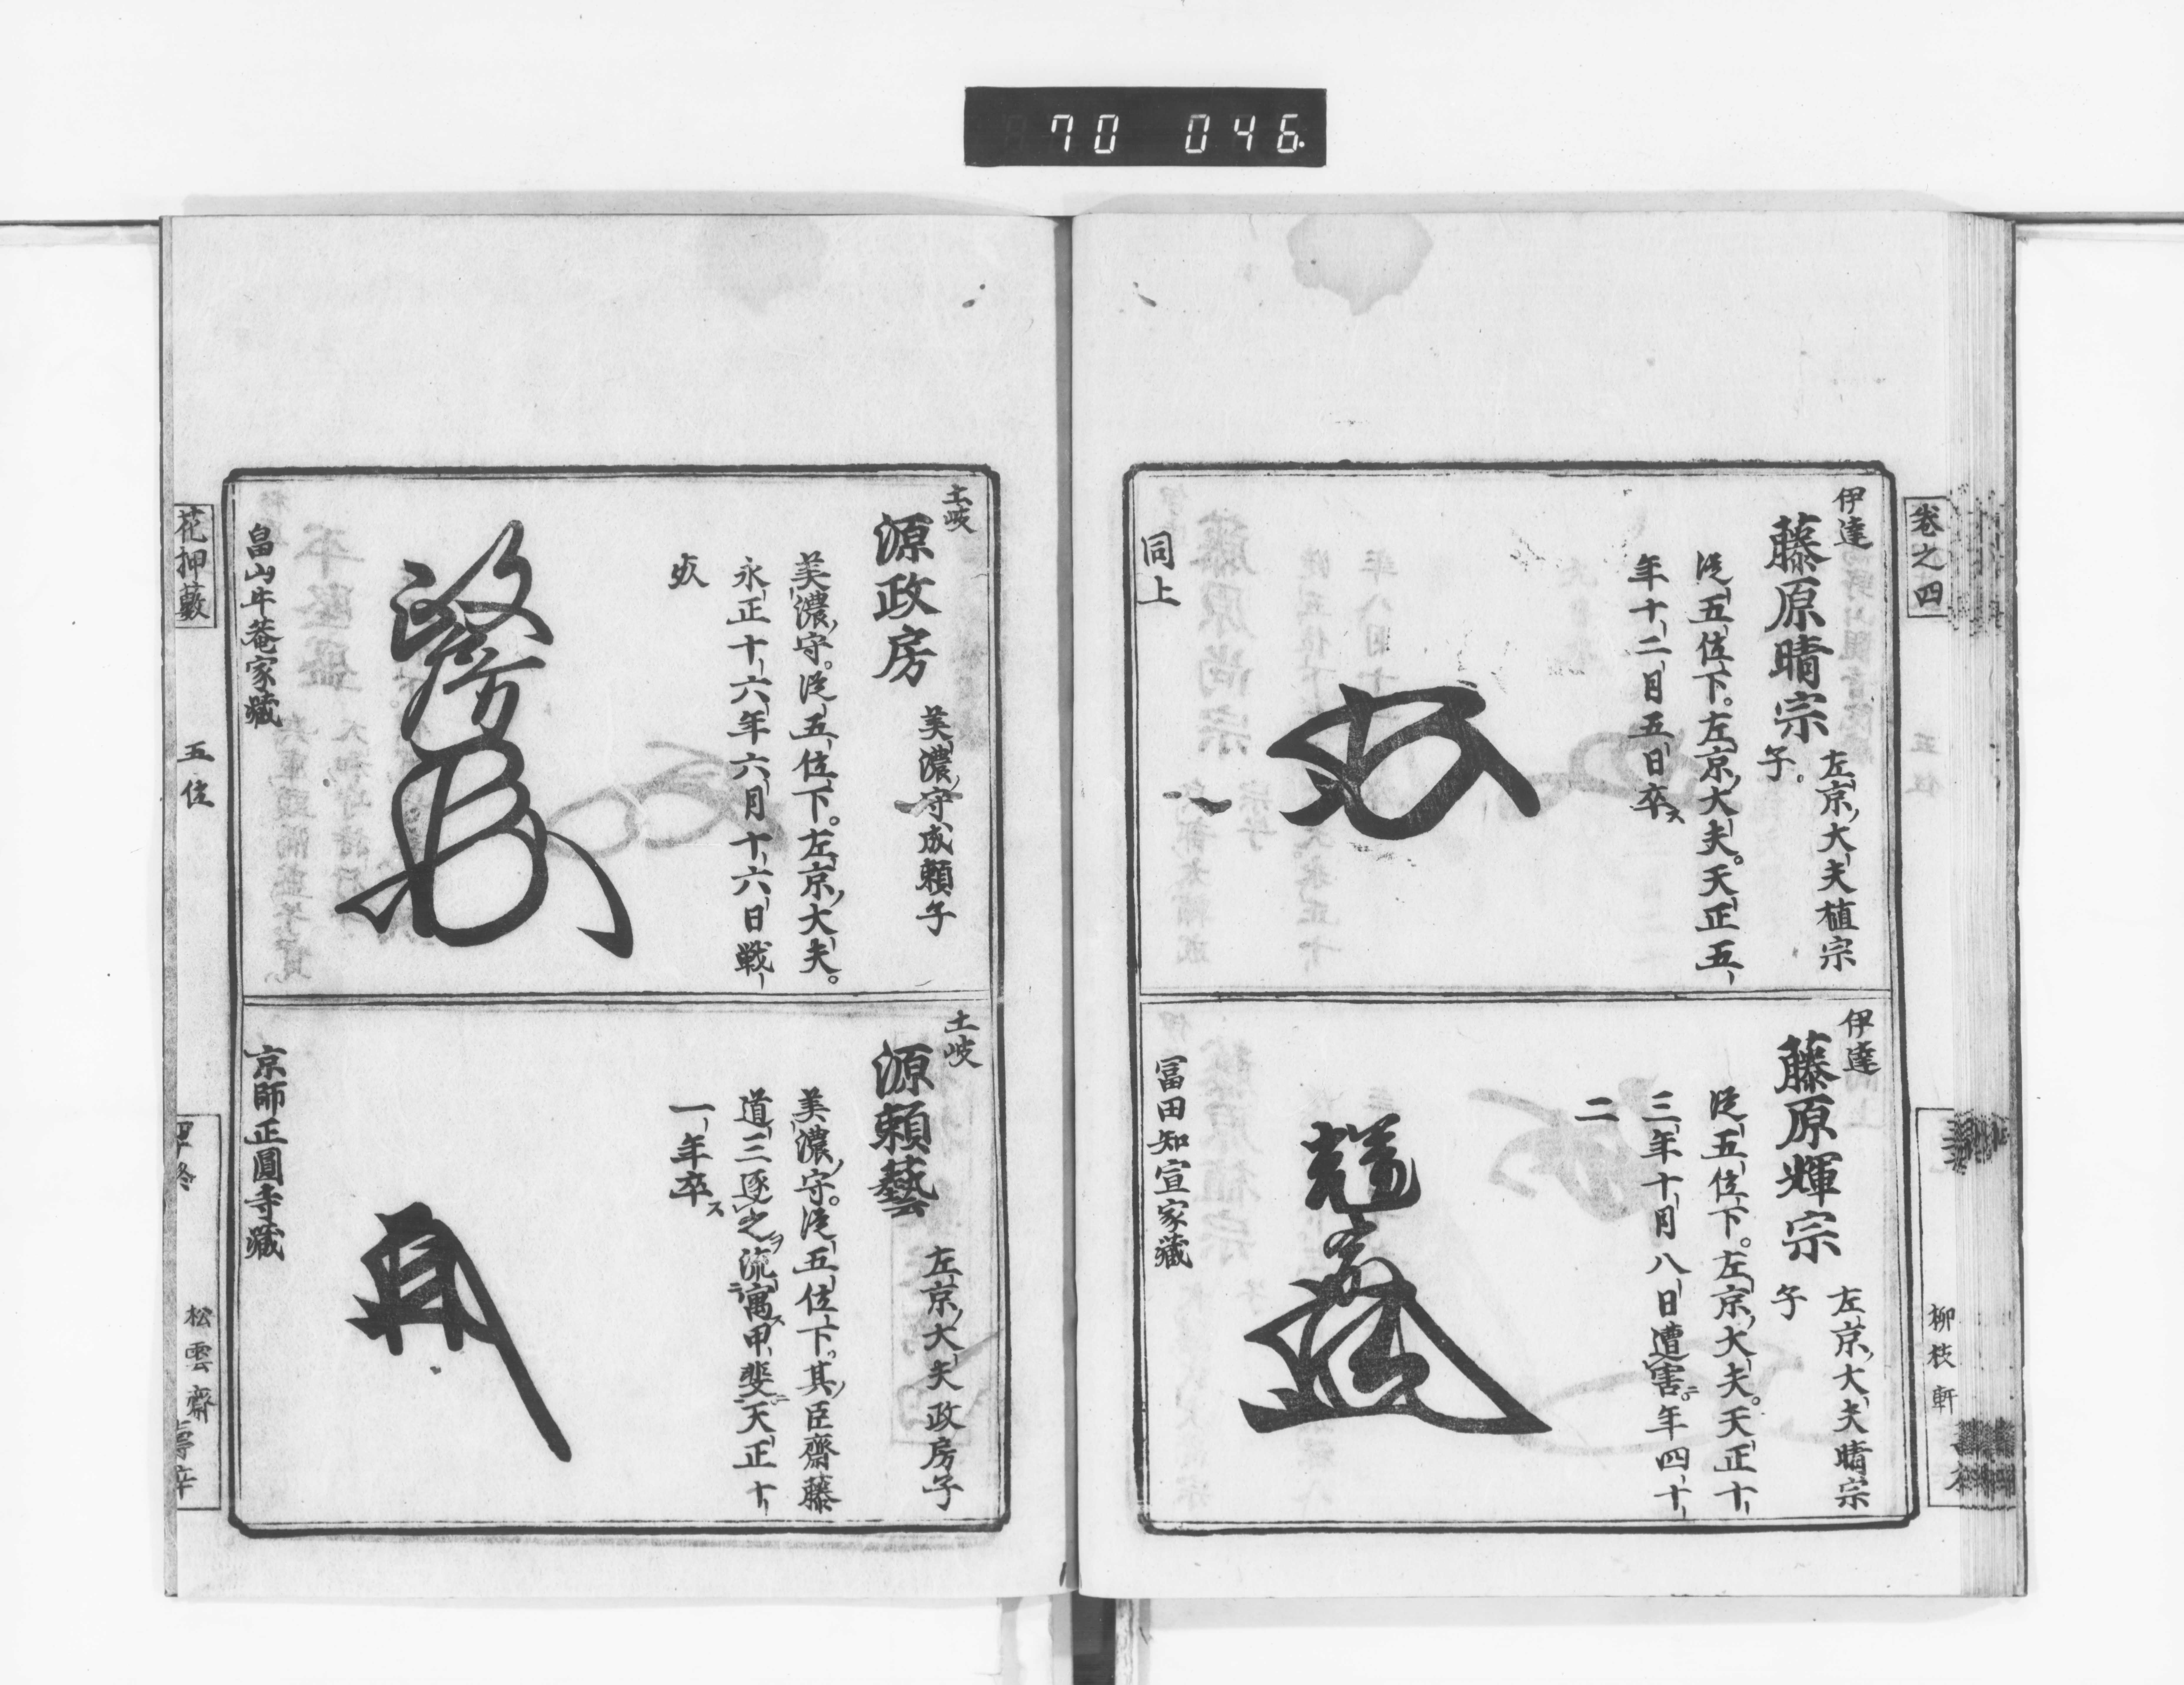 70 046.
卷之四
柳枝軒
伊達
藤原晴宗
左京大夫植宗
子
従五位下。左京大夫。天正五
年十二月五日卒ス
同上
伊達
藤原輝宗
左京大夫晴宗
子
従五位下。左京大夫。天正十
三年十月八日遭害ニ。年四十
二
冨田知宣家藏
土岐
源政房
美濃守成頼子
美濃守。従五位下。左京大夫。
永正十六年六月十六日戦
政房
畠山牛菴家藏
土岐
源頼藝
左京大夫政房子
美濃守。従五位下。其臣齋藤
道三逐之ヲ流寓ス甲斐ニ天正十
一年卒ス
京師正圓寺藏
花押藪
五位
松雲齋